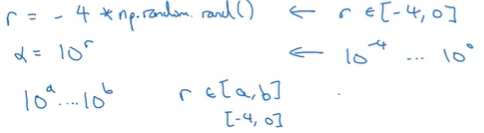 r = -4 * np.random.rand() ← r ∈ [-4, 0]
α = 10^r ← 10^-4 ... 10^0
10^a ... 10^b r ∈ [a, b]
[-4, 0]